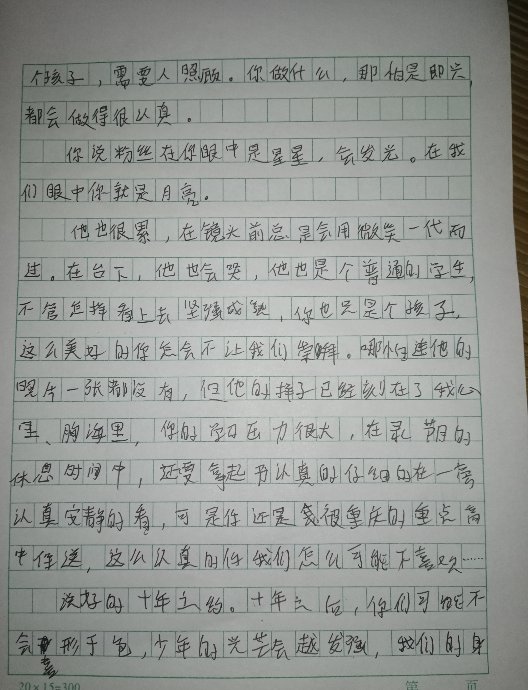 个孩子，需要人照顾。你做什么，那怕是即兴，
都会做得很认真。
你说粉丝在你眼中是星星，会发光。在我
们眼中你就是月亮。
他也很累，在镜头前总是会用微笑一代而
过。在台下，他也会哭，他也是个普通的学生，
不管怎样看上去坚强成熟，你也只是个孩子，
这么美好的你怎会不让我们崇拜。哪怕连他的
照片一张都没有，但他的样子已经刻在了我心
里、脑海里，你的学习压力很大，在录节目的
休息时间中，还要拿起书认真的仔细的在一旁
认真安静的看，可是你还是被重庆的重点高
中保送，这么认真的你我们怎么可能不喜欢……
说好的十年之约。十年之后，你们可能不
会喜形于色，少年的光芒会越发强，我们的身
20×15=300 第 页